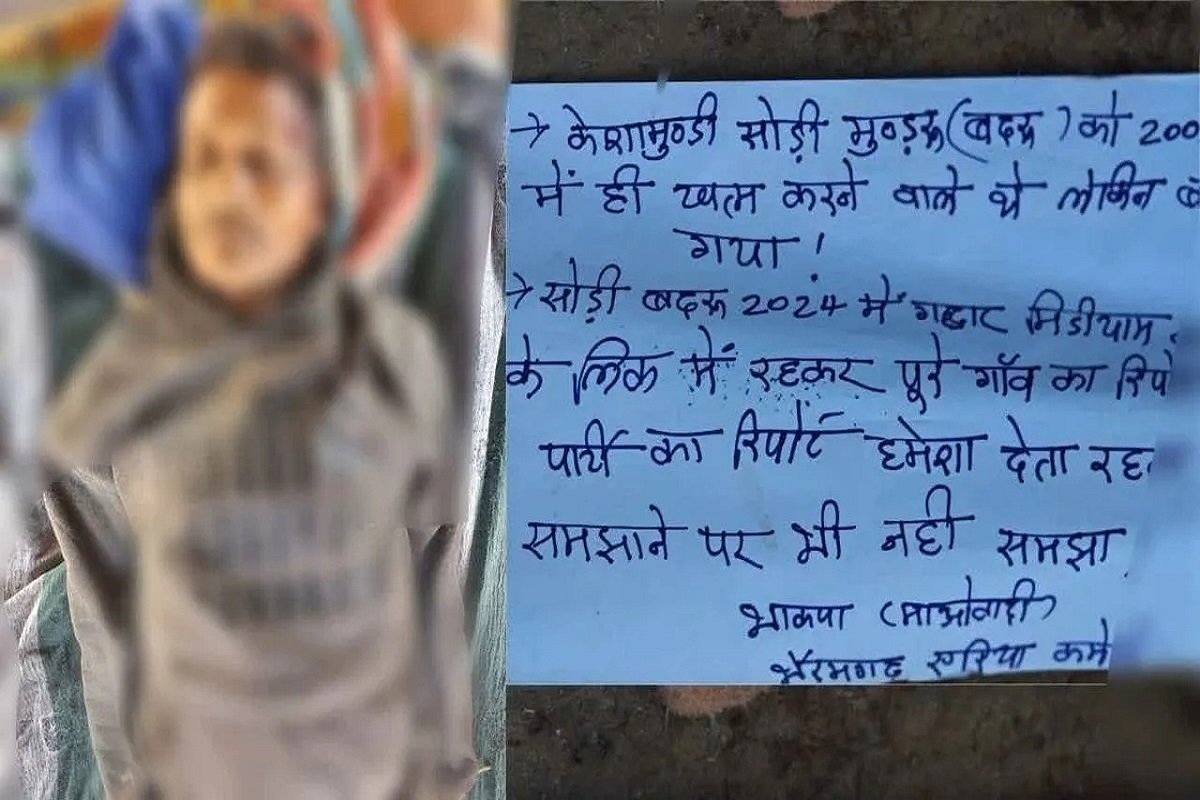 → केशामुण्डी सोड़ी मुण्ड़रू (बदरू) को 200
में ही खत्म करने वाले थे लेकिन
गया!
→ सोड़ी बदरू 2024 में गद्दार मिडीयाम
के लिंक में रहकर पूरे गाँव का रिपो
पार्टी का रिपोर्ट हमेशा देता रह
समझाने पर भी नही समझा
भाकपा (माओवादी)
भैरमगढ़ एरिया कमे